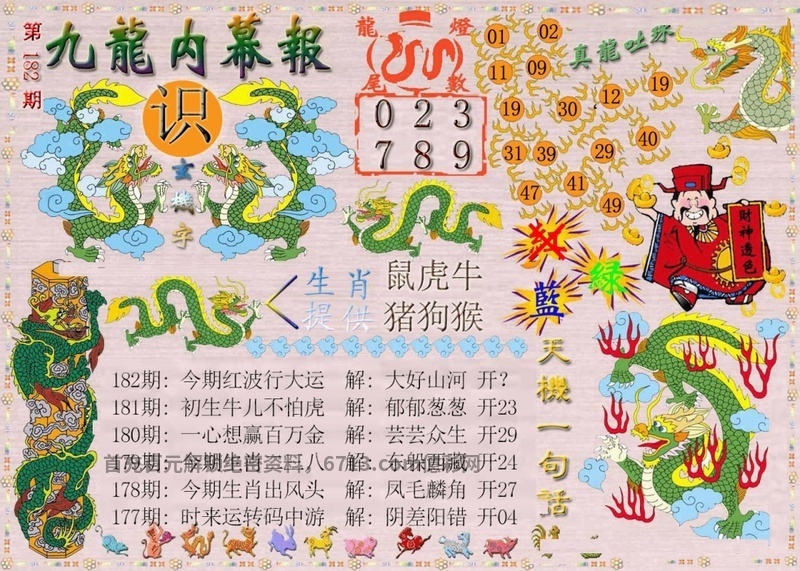 第182期
九龍内幕報
识
玄機字
龍燈
尾數
0 2 3
7 8 9
真龍吐珠
01 02
11 09
19 30 12 19
31 39 29 40
47 41 49
红
綠
藍
財神透色
生肖
提供
鼠虎牛
猪狗猴
天機一句話
182期: 今期红波行大运 解: 大好山河 开?
181期: 初生牛儿不怕虎 解: 郁郁葱葱 开23
180期: 一心想赢百万金 解: 芸芸众生 开29
179期: 今期生肖 八 解: 东 西藏 开24
178期: 今期生肖出风头 解: 凤毛麟角 开27
177期: 时来运转码中游 解: 阴差阳错 开04